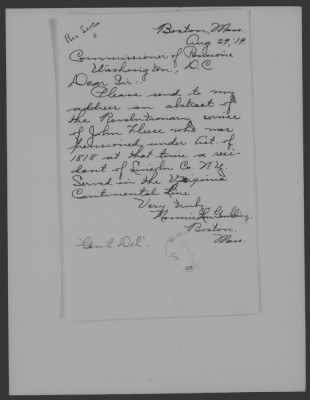 Rev Sec
Boston, Mass.
Aug. 29, '19.
Commissioner of Pensions
Washington, D.C
Dear Sir:
Please send to my
address an abstract of
the Revolutionary service
of John Fleece who was
pensioned under Act of
1818 at that time a resi-
dent of Lincoln Co. Ky.
Served in the Virginia
Continental Line.
Very truly
Boston
Mass.
"Gen'l Del".